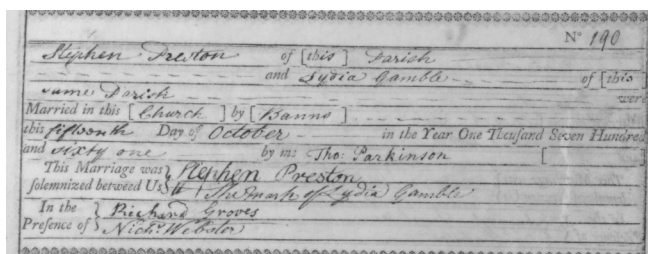 No 190
Stephen Preston of [this] Parish
and Lydia Gamble of [this]
same Parish were
Married in this [Church] by [Banns]
this fifteenth Day of October in the Year One Thousand Seven Hundred
and sixty one by me Tho: Parkinson [
This Marriage was } Stephen Preston
solemnized between Us } The mark of Lydia Gamble
In the } Richard Groves
Presence of } Nichs. Webster